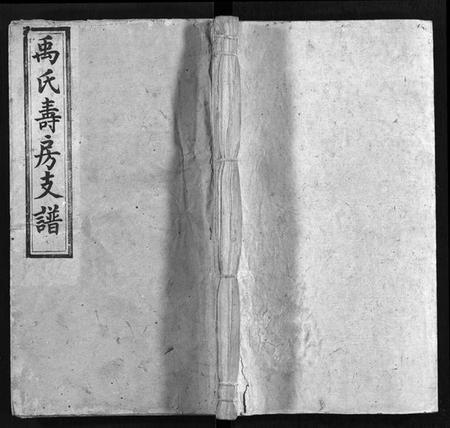 禹氏壽房支譜